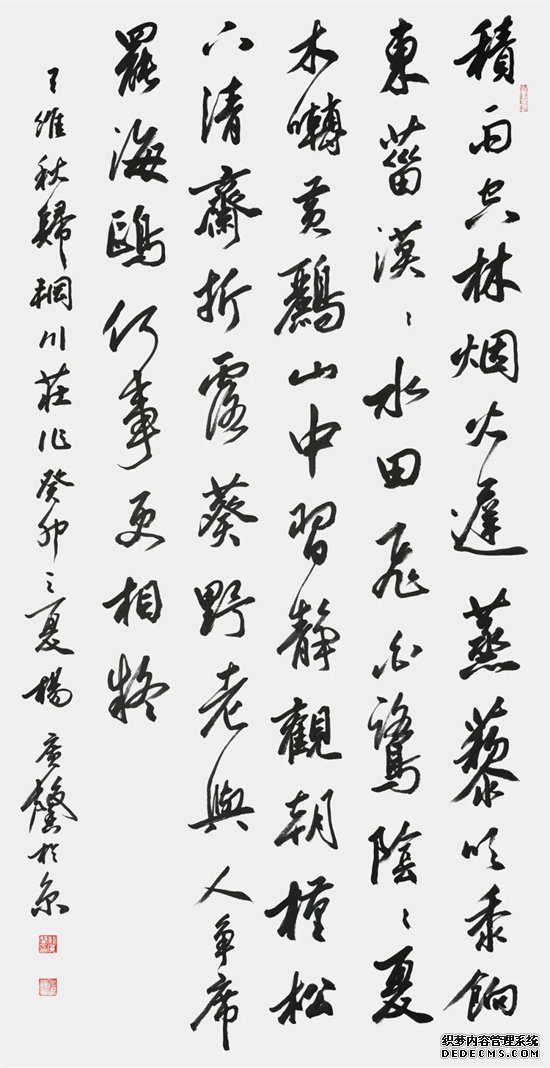 積雨空林烟火遲蒸藜炊黍餉
東菑漠〻水田飛白鷺陰〻夏
木囀黄鸝山中習靜觀朝槿松
下清齋折露葵野老與人争席
罷海鷗何事更相疑
王維秋歸輞川莊作癸卯之夏楊廣馨於京
织梦内容管理系统
DEDECMS.COM